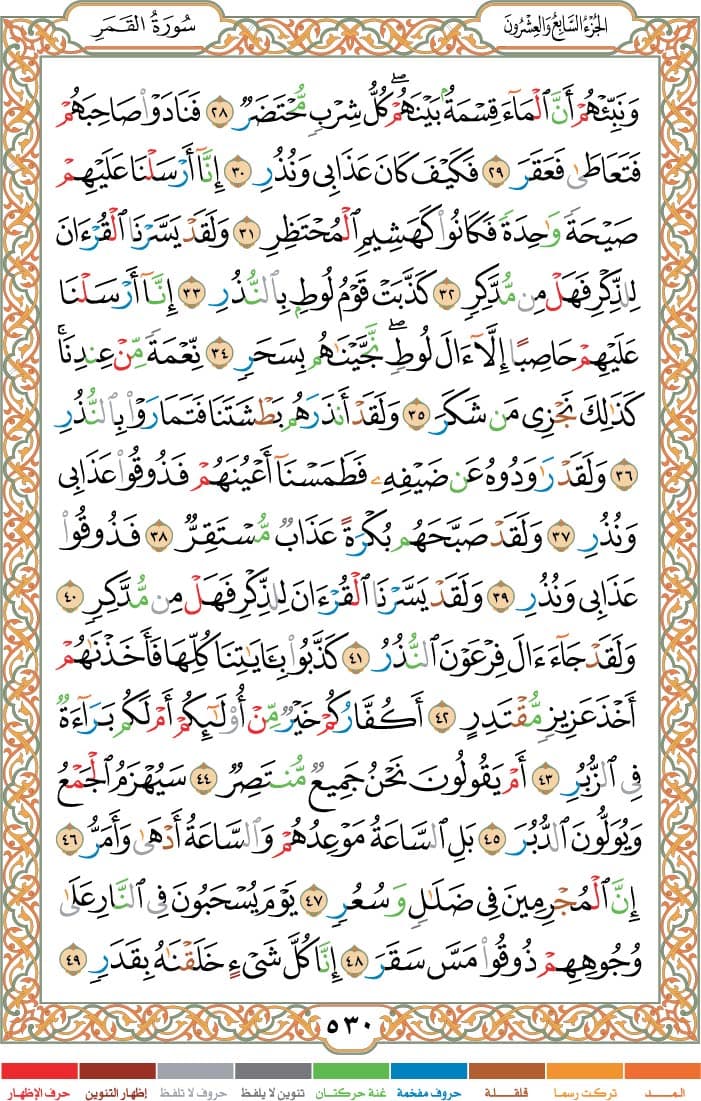 الجزء السابع والعشرون
سورة القمر
وَنَبِّئْهُمْ أَنَّ ٱلْمَآءَ قِسْمَةٌۢ بَيْنَهُمْ ۖ كُلُّ شِرْبٍ مُّحْتَضَرٌ ٢٨ فَنَادَوْا۟ صَاحِبَهُمْ
فَتَعَاطَىٰ فَعَقَرَ ٢٩ فَكَيْفَ كَانَ عَذَابِى وَنُذُرِ ٣٠ إِنَّآ أَرْسَلْنَا عَلَيْهِمْ
صَيْحَةً وَٰحِدَةً فَكَانُوا۟ كَهَشِيمِ ٱلْمُحْتَظِرِ ٣١ وَلَقَدْ يَسَّرْنَا ٱلْقُرْءَانَ
لِلذِّكْرِ فَهَلْ مِن مُّدَّكِرٍ ٣٢ كَذَّبَتْ قَوْمُ لُوطٍۭ بِٱلنُّذُرِ ٣٣ إِنَّآ أَرْسَلْنَا
عَلَيْهِمْ حَاصِبًا إِلَّآ ءَالَ لُوطٍ ۖ نَّجَّيْنَٰهُم بِسَحَرٍ ٣٤ نِّعْمَةً مِّنْ عِندِنَا ۚ
كَذَٰلِكَ نَجْزِى مَن شَكَرَ ٣٥ وَلَقَدْ أَنذَرَهُم بَطْشَتَنَا فَتَمَارَوْا۟ بِٱلنُّذُرِ
٣٦ وَلَقَدْ رَٰوَدُوهُ عَن ضَيْفِهِۦ فَطَمَسْنَآ أَعْيُنَهُمْ فَذُوقُوا۟ عَذَابِى
وَنُذُرِ ٣٧ وَلَقَدْ صَبَّحَهُم بُكْرَةً عَذَابٌ مُّسْتَقِرٌّ ٣٨ فَذُوقُوا۟
عَذَابِى وَنُذُرِ ٣٩ وَلَقَدْ يَسَّرْنَا ٱلْقُرْءَانَ لِلذِّكْرِ فَهَلْ مِن مُّدَّكِرٍ ٤٠
وَلَقَدْ جَآءَ ءَالَ فِرْعَوْنَ ٱلنُّذُرُ ٤١ كَذَّبُوا۟ بِـَٔايَٰتِنَا كُلِّهَا فَأَخَذْنَٰهُمْ
أَخْذَ عَزِيزٍ مُّقْتَدِرٍ ٤٢ أَكُفَّارُكُمْ خَيْرٌ مِّنْ أُو۟لَٰٓئِكُمْ أَمْ لَكُم بَرَآءَةٌ
فِى ٱلزُّبُرِ ٤٣ أَمْ يَقُولُونَ نَحْنُ جَمِيعٌ مُّنتَصِرٌ ٤٤ سَيُهْزَمُ ٱلْجَمْعُ
وَيُوَلُّونَ ٱلدُّبُرَ ٤٥ بَلِ ٱلسَّاعَةُ مَوْعِدُهُمْ وَٱلسَّاعَةُ أَدْهَىٰ وَأَمَرُّ ٤٦
إِنَّ ٱلْمُجْرِمِينَ فِى ضَلَٰلٍ وَسُعُرٍ ٤٧ يَوْمَ يُسْحَبُونَ فِى ٱلنَّارِ عَلَىٰ
وُجُوهِهِمْ ذُوقُوا۟ مَسَّ سَقَرَ ٤٨ إِنَّا كُلَّ شَىْءٍ خَلَقْنَٰهُ بِقَدَرٍ ٤٩
٥٣٠
المــد تركت رسما قلقلة حروف مفخمة غنة حركتان تنوين لا يلفظ حروف لا تلفظ إظهار التنوين حرف الإظهار